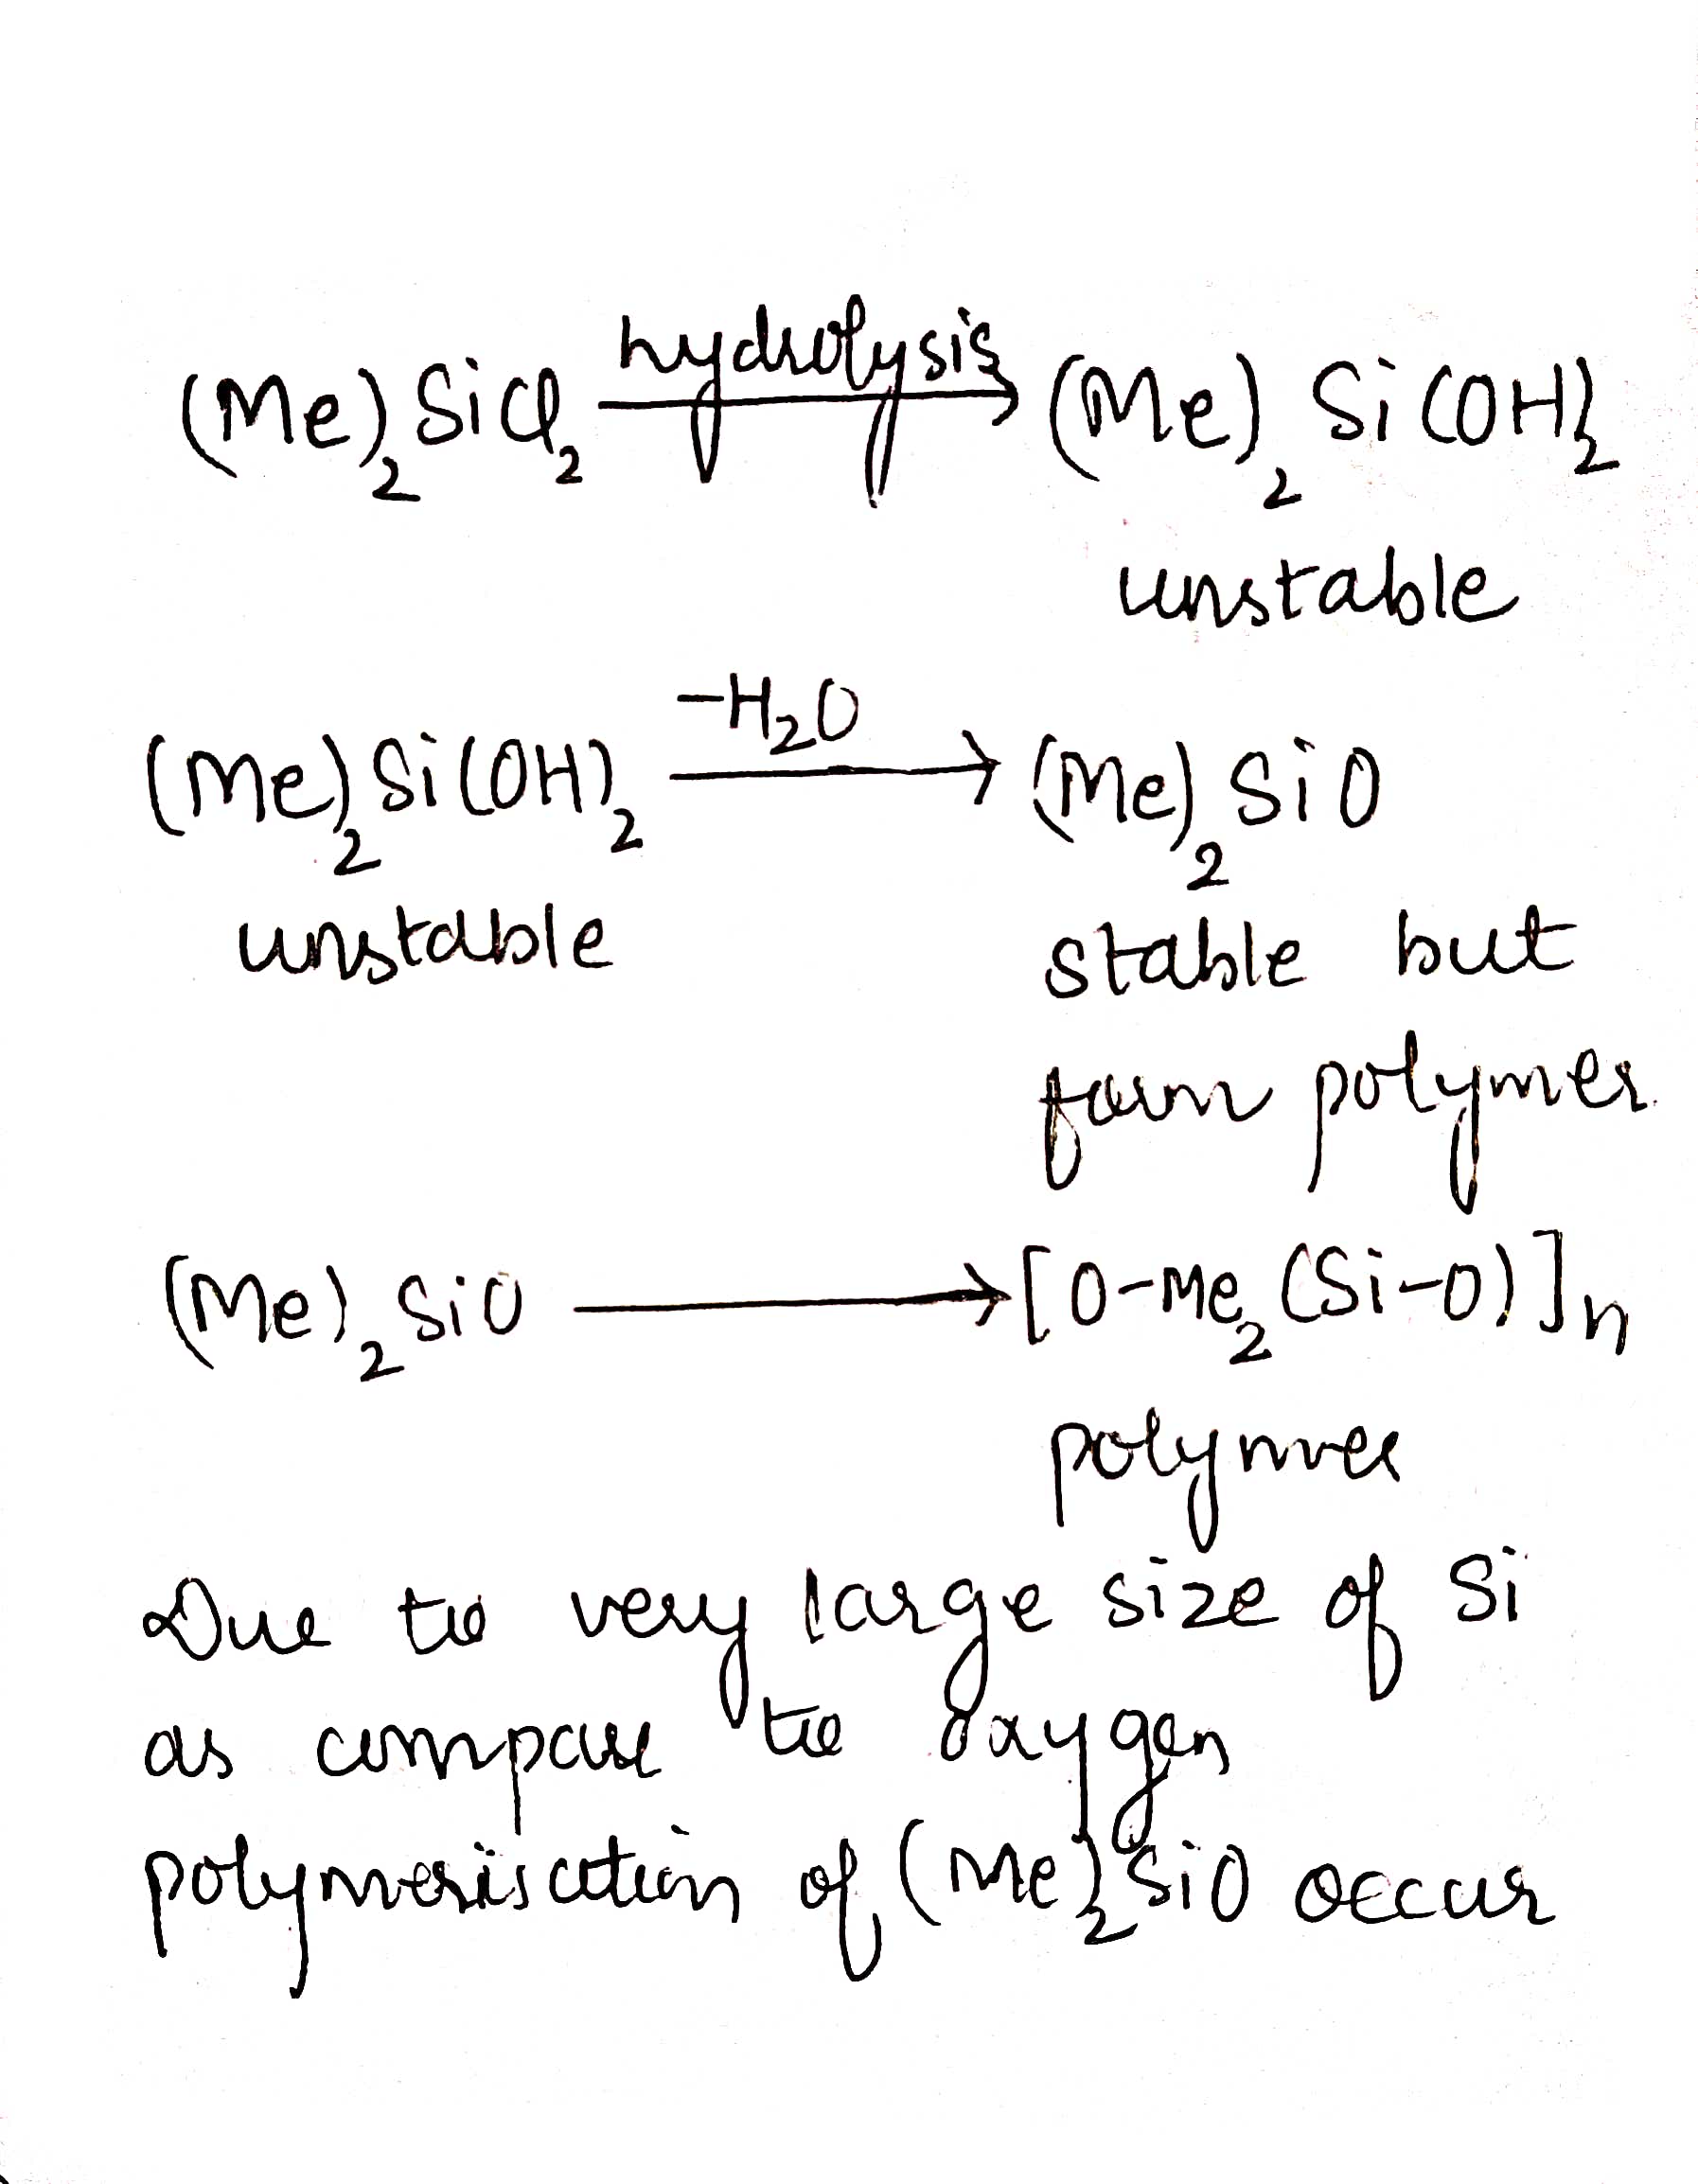 (Me)₂SiCl₂ hydrolysis → (Me)₂Si(OH)₂
unstable
(Me)₂Si(OH)₂ -H₂O → (Me)₂SiO
unstable stable but
form polymer.
(Me)₂SiO → [O-Me₂(Si-O)]n
polymer
Due to very large size of Si
as compare to oxygen
polymerisation of (Me)₂SiO occur